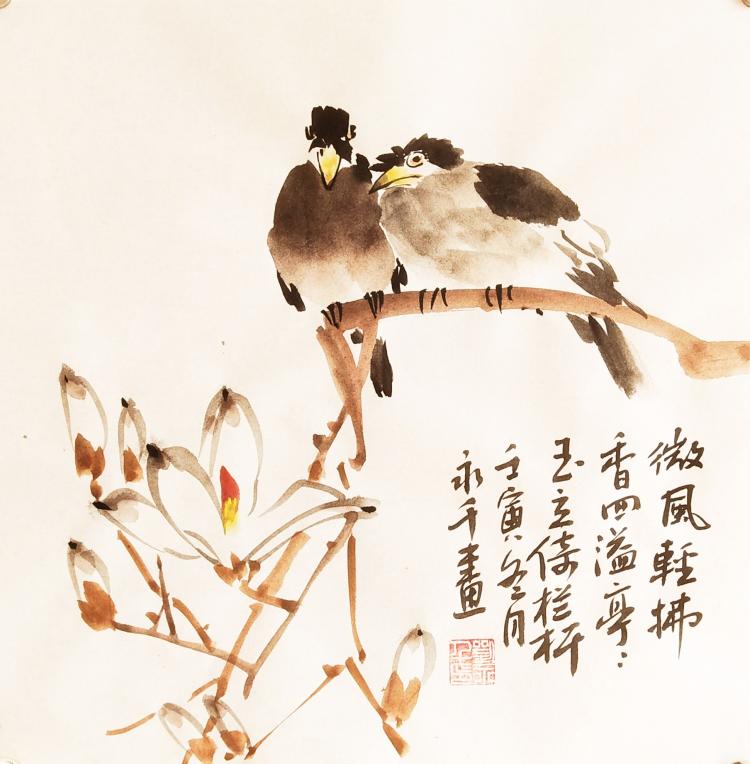 微风輕拂
香四溢亭〻
玉立倚栏杆
壬寅冬月
永千畫